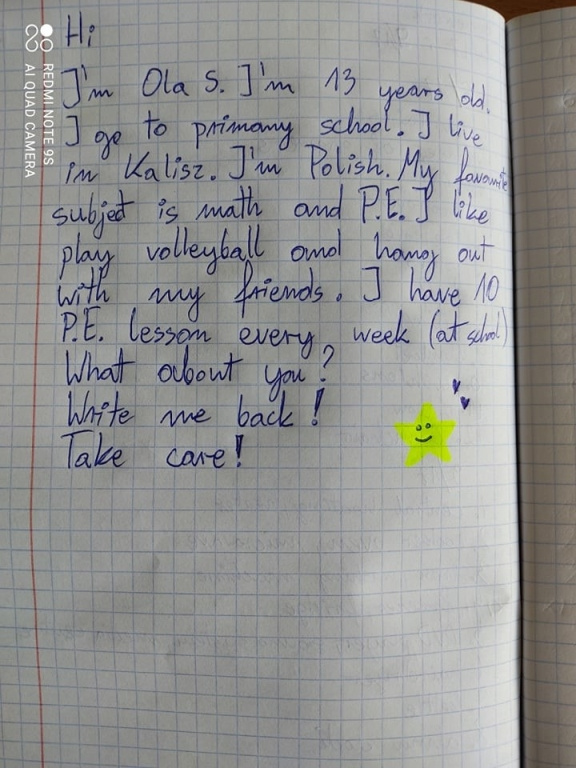 Hi
I'm Ola S. I'm 13 years old.
I go to primary school. I live
in Kalisz. I'm Polish. My favourite
subject is math and P.E. I like
play volleyball and hang out
with my friends. I have 10
P.E. lesson every week (at school)
What about you?
Write me back!
Take care!
REDMI NOTE 9S
AI QUAD CAMERA